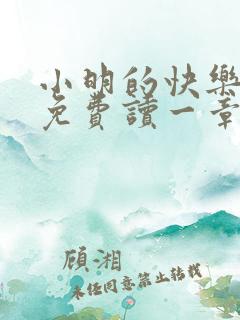 小明的快樂
免費讀一章
顾湘
未经同意禁止转载